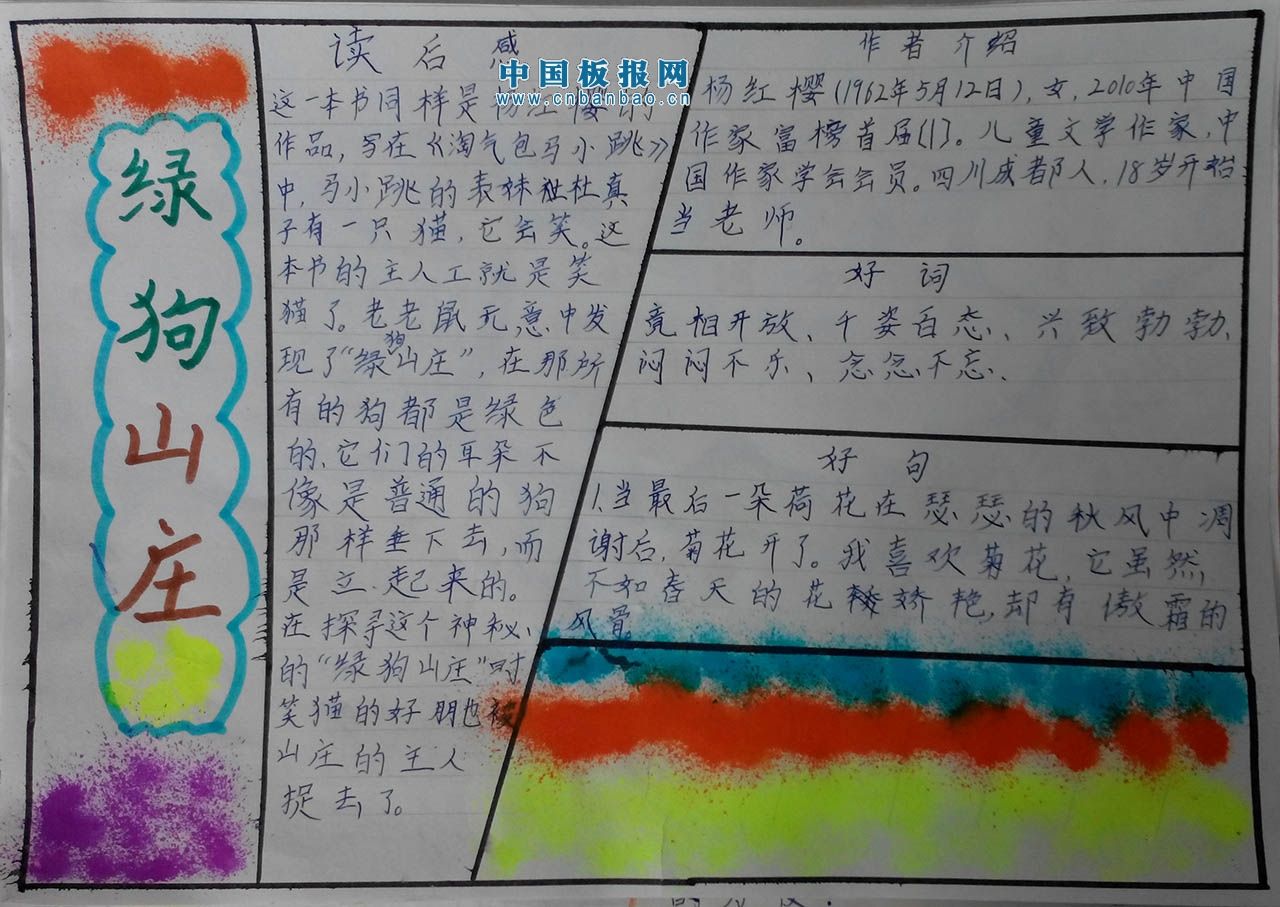 绿
狗
山
庄
读后感
中国板报网
www.cnbanbao.cn
这一本书同样是杨红樱的
作品,写在《淘气包马小跳》
中,马小跳的表妹杜真
子有一只猫,它会笑。这
本书的主人工就是笑
猫了。老老鼠无意中发
现了“绿狗山庄”,在那所
有的狗都是绿色
的,它们的耳朵不
像是普通的狗
那样垂下去,而
是立起来的。
在探寻这个神秘
的“绿狗山庄”时
笑猫的好朋也被
山庄的主人
捉去了。
作者介绍
杨红樱(1962年5月12日),女,2010年中国
作家富榜首届[1]。儿童文学作家,中
国作家学会会员。四川成都人,18岁开始
当老师。
好词
竟相开放、千姿百态、兴致勃勃、
闷闷不乐、念念不忘、
好句
1.当最后一朵荷花在瑟瑟的秋风中凋
谢后,菊花开了。我喜欢菊花,它虽然
不如春天的花娇艳,却有傲霜的
风骨。